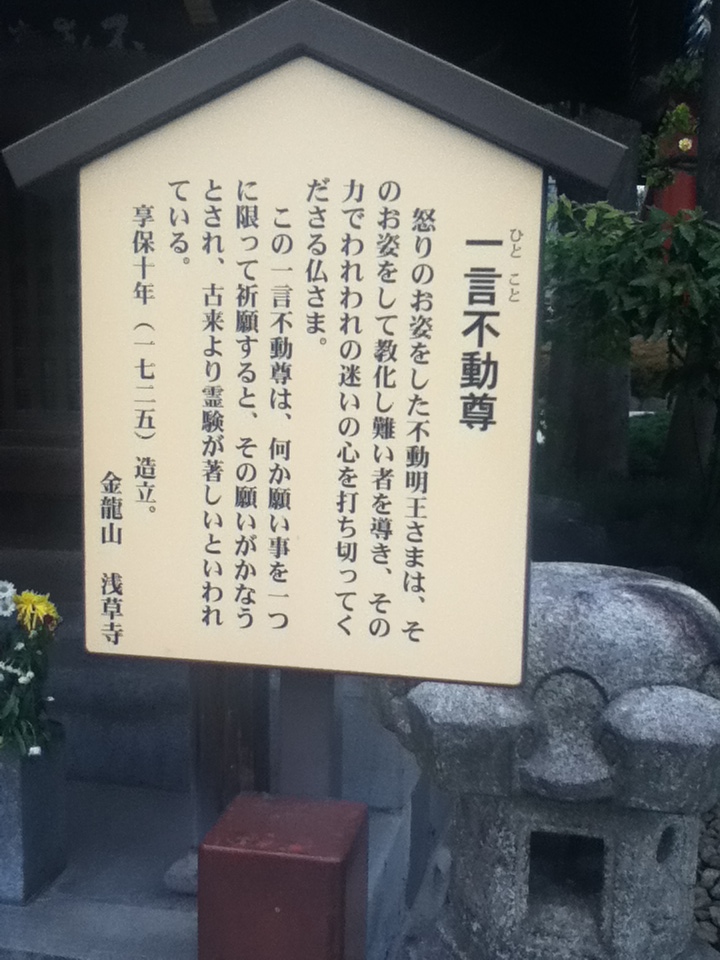 一言不動尊
ひと こと
怒りのお姿をした不動明王さまは、そ
のお姿をして教化し難い者を導き、その
力でわれわれの迷いの心を打ち切ってく
ださる仏さま。
この一言不動尊は、何か願い事を一つ
に限って祈願すると、その願いがかなう
とされ、古来より霊験が著しいといわれ
ている。
享保十年（一七二五）造立。
金龍山　浅草寺